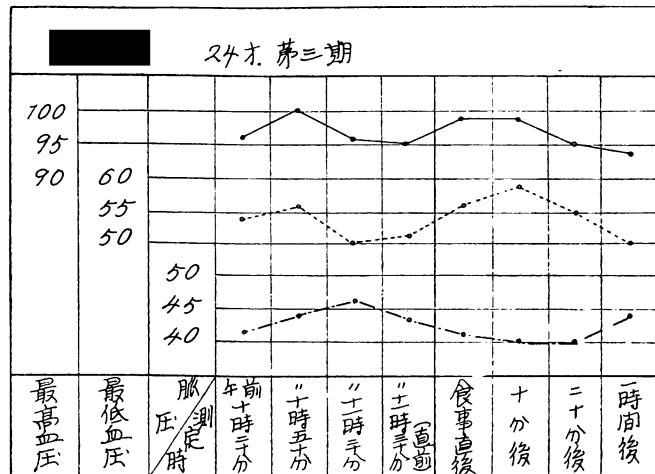 24才. 第三期
100
95
90
60
55
50
50
45
40
最高血圧
最低血圧
脈圧
測定時
午前十時二十分
〃十時五十分
〃十一時二十分
〃十一時三十分(直前)
食事直後
十分後
二十分後
一時間後